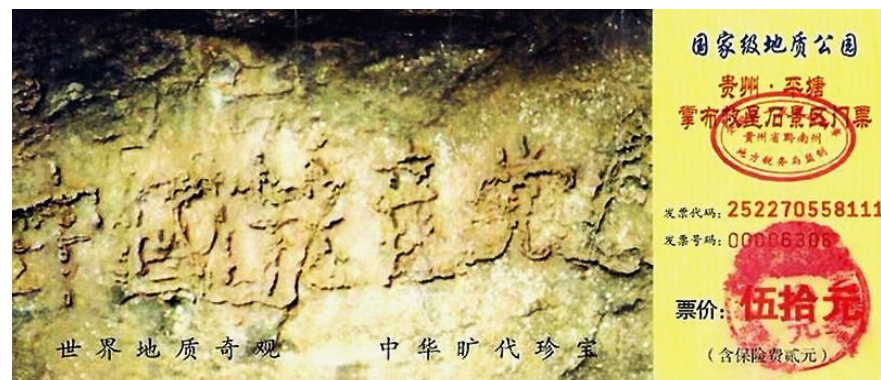 中國共产党
世界地质奇观
中华旷代珍宝
国家级地质公园
贵州·平塘
掌布救星石景区门票
贵州省黔南州
地方税务局监制
发票代码：252270558111
发票号码：00006306
票价：伍拾元
（含保险费贰元）